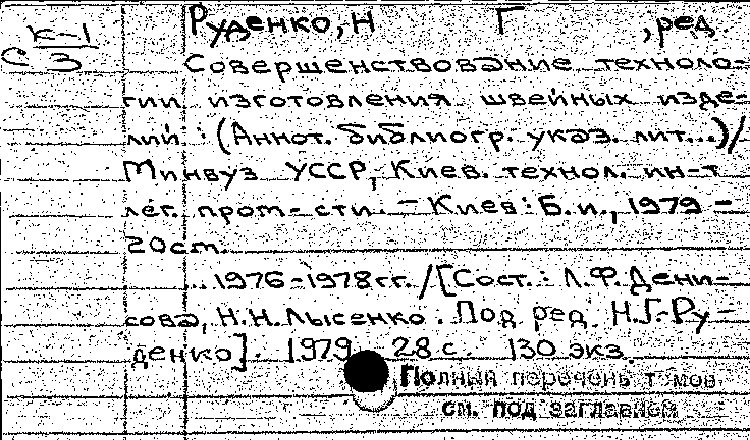 К-1
С 3
Руденко, Н Г , ред.
Совершенствование техноло-
гии изготовления швейных изде-
лий : (Аннот. библиогр. указ. лит...)/
Минвуз УССР, Киев. технол. ин-т
лег. пром-сти. - Киев: Б.и., 1979 -
20см.
...1976-1978гг. /[Сост.: Л.Ф. Дени-
сова, Н.Н. Лысенко. Под ред. Н.Г. Ру-
денко]. 1979 28 с. 130 экз.
Полный перечень томов
см. под заглавием